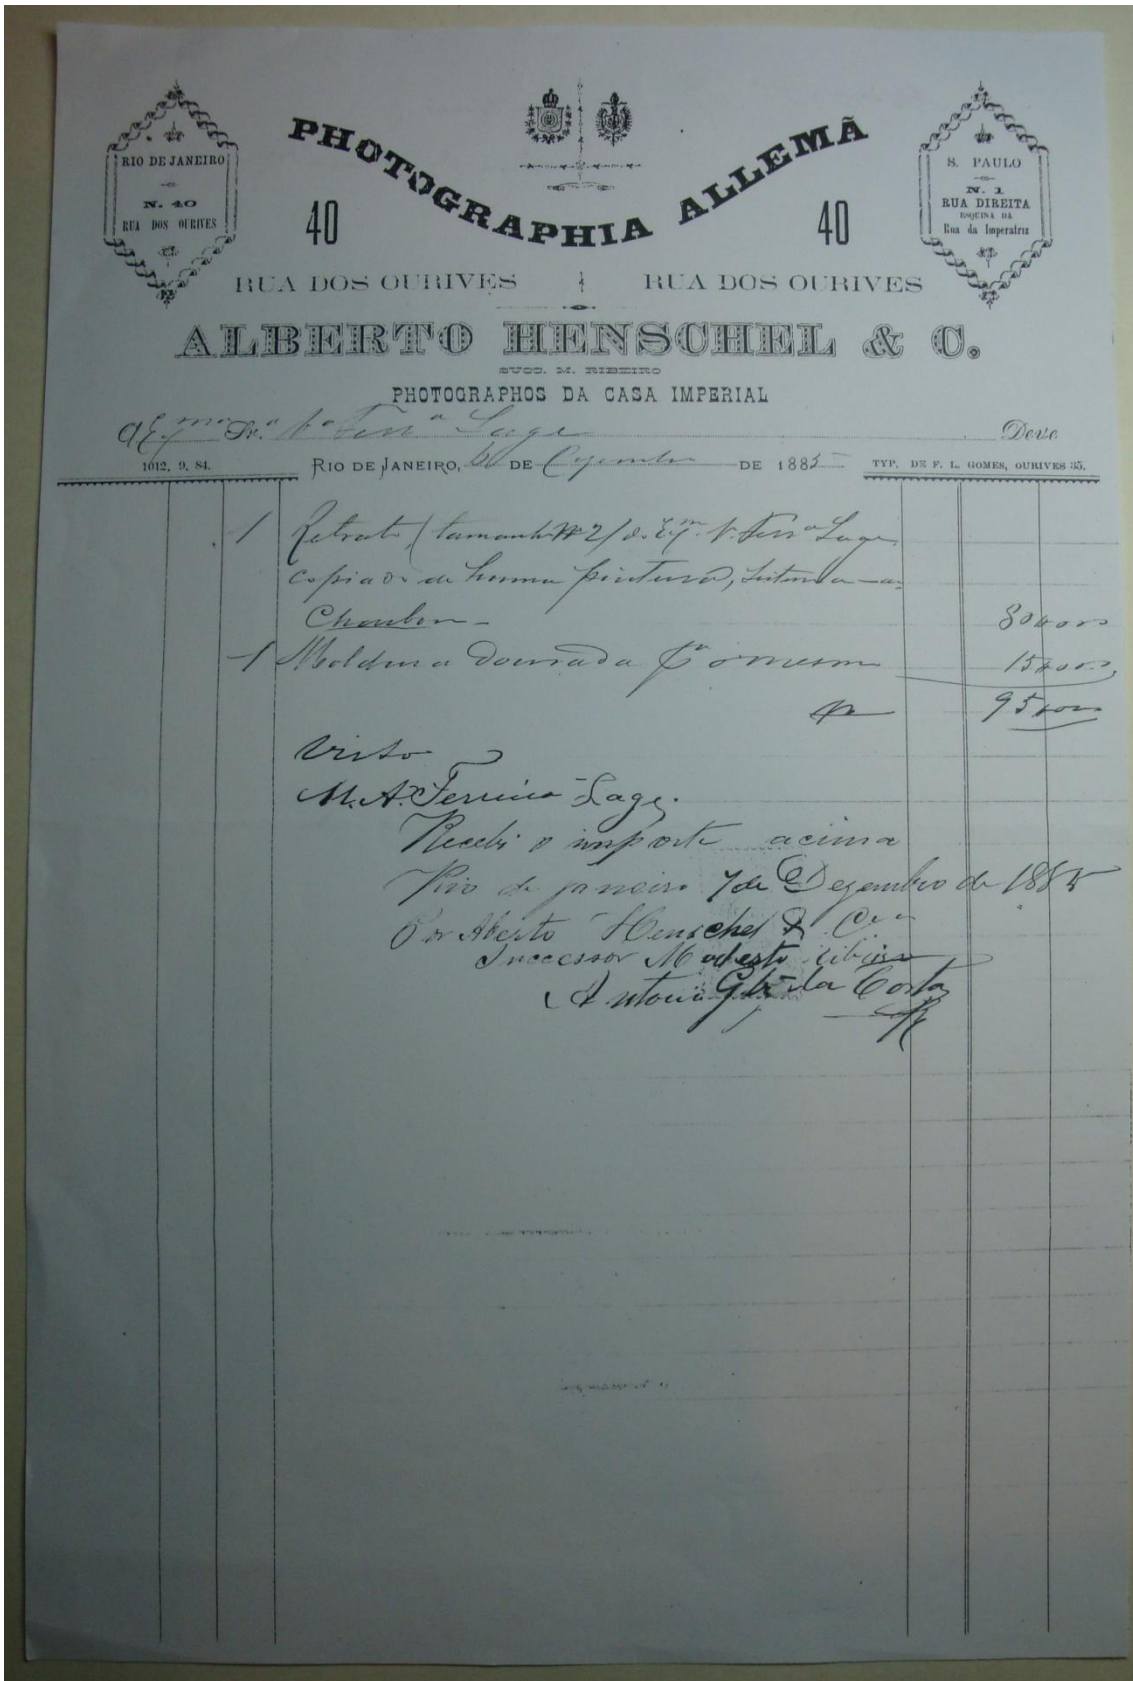 PHOTOGRAPHIA ALLEMÃ
RIO DE JANEIRO
N. 40
RUA DOS OURIVES
S. PAULO
N. 1
RUA DIREITA
ESQUINA DA
Rua da Imperatriz
40
40
RUA DOS OURIVES
RUA DOS OURIVES
ALBERTO HENSCHEL & C.
SUCC. M. RIBEIRO
PHOTOGRAPHOS DA CASA IMPERIAL
Snr. Lage Deve
1012, 9, 84. RIO DE JANEIRO, DE Dezembro DE 1885 TYP. DE F. L. GOMES, OURIVES 35.
1 Retrato (tamanho Nº 2) Lage
copiado de huma pintura,
80$000
1 Moldura Dourada Pª o mesmo 15$000
95$000
Visto
M. A. Ferreira Lage.
Recebi o importe acima
Rio de janeiro 7 de Dezembro de 1885
Por Alberto Henschel & Cia
Successor Modesto Ribeiro
Antonio da Costa